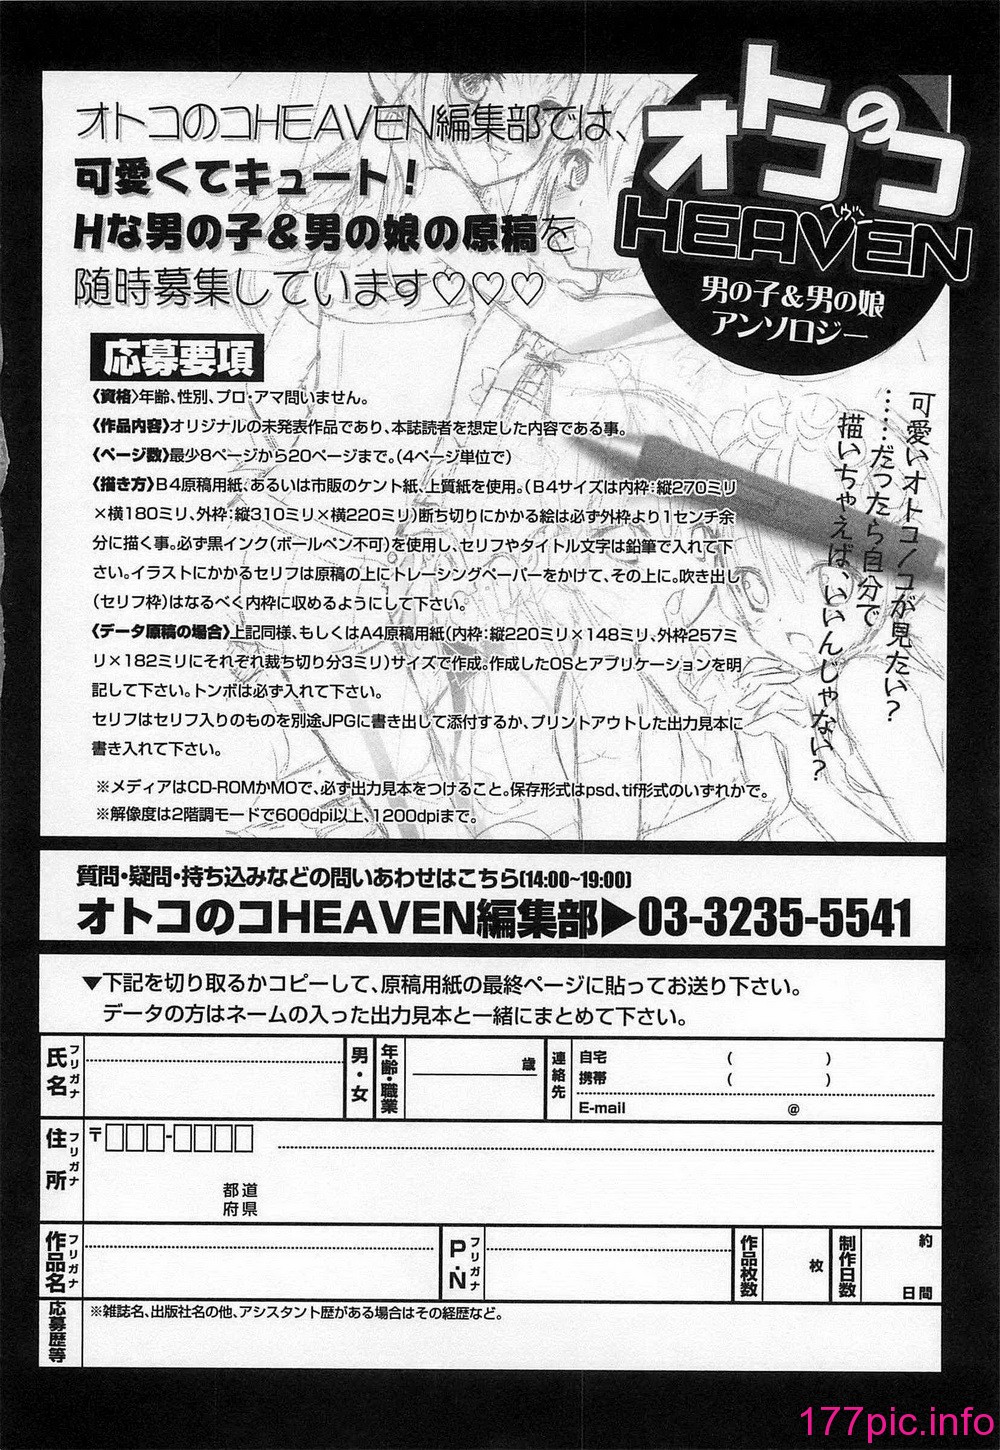 オトコのコHEAVEN編集部では、
可愛くてキュート！
Hな男の子＆男の娘の原稿を
随時募集しています♡♡♡
オトコのコ
HEAVEN
ヘヴン
男の子＆男の娘
アンソロジー
可愛いオトコノコが見たい？
……だったら自分で
描いちゃえば、いいんじゃない？
応募要項
〈資格〉年齢、性別、プロ・アマ問いません。
〈作品内容〉オリジナルの未発表作品であり、本誌読者を想定した内容である事。
〈ページ数〉最少8ページから20ページまで。（4ページ単位で）
〈描き方〉B4原稿用紙、あるいは市販のケント紙、上質紙を使用。（B4サイズは内枠：縦270ミリ
×横180ミリ、外枠：縦310ミリ×横220ミリ）断ち切りにかかる絵は必ず外枠より1センチ余
分に描く事。必ず黒インク（ボールペン不可）を使用し、セリフやタイトル文字は鉛筆で入れて下
さい。イラストにかかるセリフは原稿の上にトレーシングペーパーをかけて、その上に。吹き出し
（セリフ枠）はなるべく内枠に収めるようにして下さい。
〈データ原稿の場合〉上記同様、もしくはA4原稿用紙（内枠：縦220ミリ×148ミリ、外枠257ミ
リ×182ミリにそれぞれ裁ち切り分3ミリ）サイズで作成。作成したOSとアプリケーションを明
記して下さい。トンボは必ず入れて下さい。
セリフはセリフ入りのものを別途JPGに書き出して添付するか、プリントアウトした出力見本に
書き入れて下さい。
※メディアはCD-ROMかMOで、必ず出力見本をつけること。保存形式はpsd、tif形式のいずれかで。
※解像度は2階調モードで600dpi以上、1200dpiまで。
質問・疑問・持ち込みなどの問いあわせはこちら（14:00~19:00）
オトコのコHEAVEN編集部▶03-3235-5541
▼下記を切り取るかコピーして、原稿用紙の最終ページに貼ってお送り下さい。
データの方はネームの入った出力見本と一緒にまとめて下さい。
氏名
フリガナ
男・女
年齢・職業
歳
連絡先
自宅 （ ）
携帯 （ ）
E-mail @
住所
フリガナ
〒□□□-□□□□
都道
府県
作品名
フリガナ
P・N
フリガナ
作品枚数
枚
制作日数
約
日間
応募歴等
※雑誌名、出版社名の他、アシスタント歴がある場合はその経歴など。
177pic.info